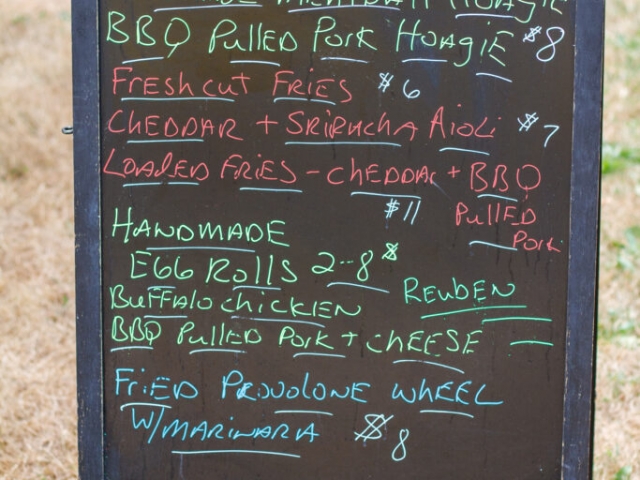 HOAGIE
BBQ PULLED PORK HOAGIE $8
FRESH CUT FRIES $6
CHEDDAR + SRIRACHA AIOLI $7
LOADED FRIES - CHEDDAR + BBQ
$11 PULLED
PORK
HANDMADE
EGG ROLLS 2--8$
BUFFALO CHICKIEN REUBEN
BBQ PULLED PORK + CHEESE
FRIED PROVOLONE WHEEL
W/MARINARA $8